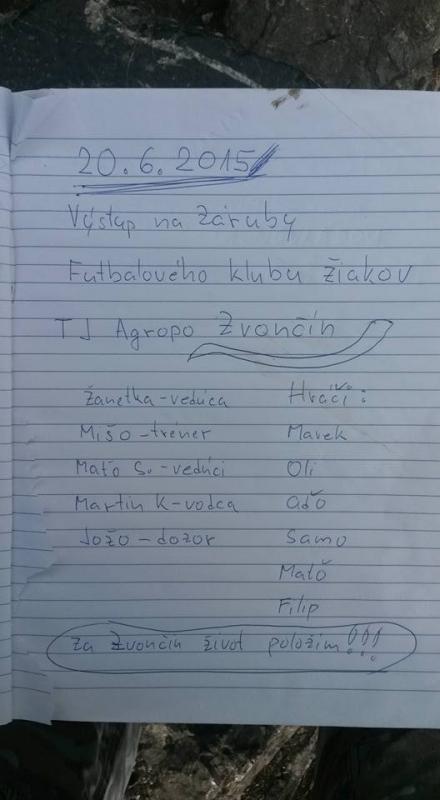 20.6.2015
Výstup na Záruby
Futbalového klubu žiakov
TJ Agropo Zvončín
Žanetka-vedúca
Mišo-tréner
Maťo S.-vedúci
Martin K-vodca
Jožo-dozor
Hráči:
Marek
Oli
aďo
Samo
Maťo
Filip
Za Zvončín život položím!!!